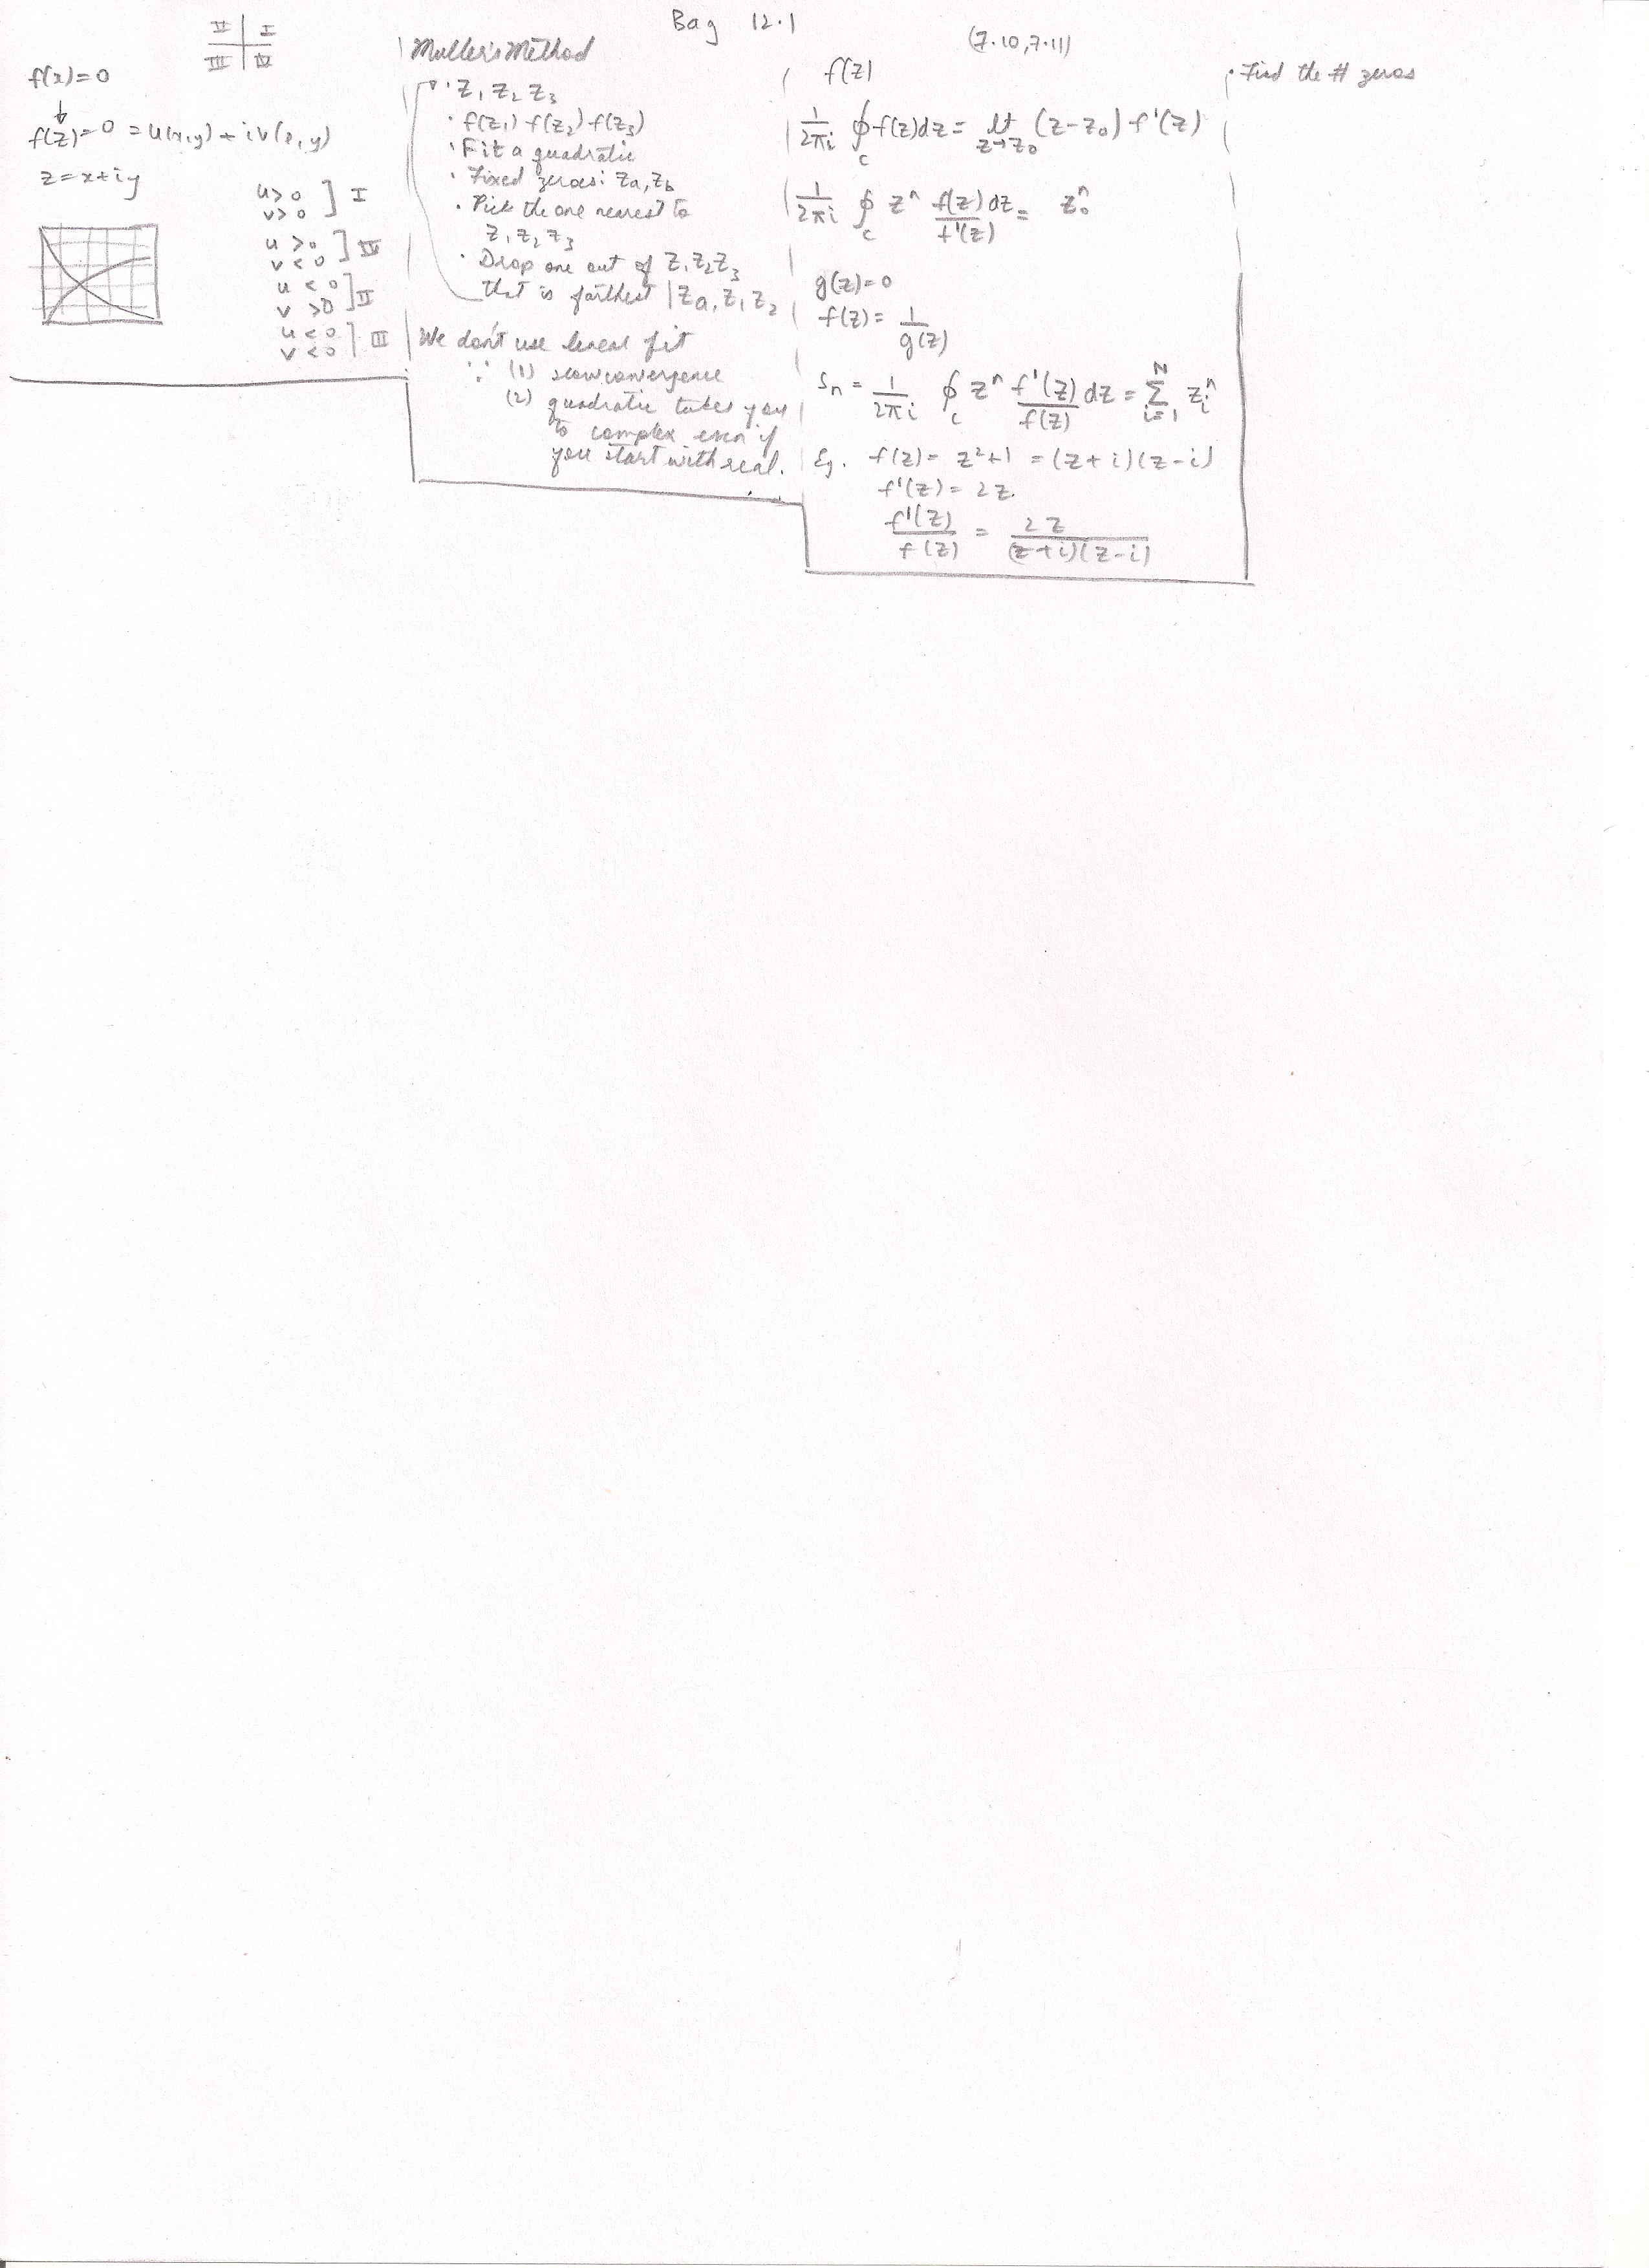 Bag 12.1
(7.10, 7.11)
II I
III IV
f(x)=0
↓
f(z)=0 = u(x,y) + iv(x,y)
z=x+iy
u>0
v>0 ] I
u>0
v<0 ] IV
u<0
v>0 ] II
u<0
v<0 ] III
Muller's Method
· z₁ z₂ z₃
· f(z₁) f(z₂) f(z₃)
· Fit a quadratic
· Fixed zeroes: za, zb
· Pick the one nearest to
z₁ z₂ z₃
· Drop one out of z₁ z₂ z₃
that is farthest | za, z₁ z₂
We don't use linear fit
∵ (1) slow convergence
(2) quadratic takes you
to complex even if
you start with real.
f(z)
1/2πi ∮c f(z)dz = lt z→z₀ (z-z₀) f'(z)
1/2πi ∮c zⁿ f(z)/f'(z) dz = z₀ⁿ
g(z)=0
f(z)= 1/g(z)
Sn = 1/2πi ∮c zⁿ f'(z)/f(z) dz = Σ i=1 N ziⁿ
Eg. f(z)= z²+1 = (z+i)(z-i)
f'(z)= 2z.
f'(z)/f(z) = 2z/(z+i)(z-i)
· Find the # zeros